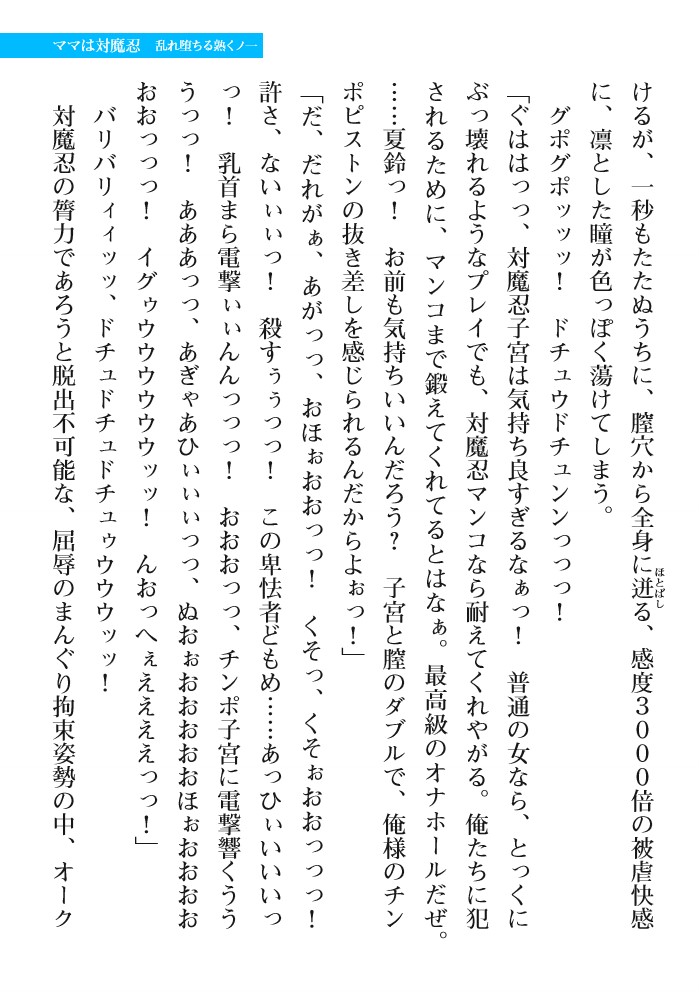 ママは対魔忍　乱れ堕ちる熟くノ一
けるが、一秒もたたぬうちに、膣穴から全身に迸る、感度3000倍の被虐快感
ほとばし
に、凛とした瞳が色っぽく蕩けてしまう。
グポグポッッッ！　ドチュウドチュンンっっっ！
「ぐははっっ、対魔忍子宮は気持ち良すぎるなぁっ！　普通の女なら、とっくに
ぶっ壊れるようなプレイでも、対魔忍マンコなら耐えてくれやがる。俺たちに犯
されるために、マンコまで鍛えてくれてるとはなぁ。最高級のオナホールだぜ。
……夏鈴っ！　お前も気持ちいいんだろう？　子宮と膣のダブルで、俺様のチン
ポピストンの抜き差しを感じられるんだからよぉっ！」
「だ、だれがぁ、あがっっ、おほぉおおっっ！　くそっ、くそぉおおっっっ！
許さ、ないぃぃっ！　殺すぅぅっっ！　この卑怯者どもめ……あっひぃいいいっ
っ！　乳首まら電撃ぃぃんんっっっ！　おおおっっ、チンポ子宮に電撃響くうう
うっっ！　あああっっ、あぎゃあひぃぃぃっっ、ぬおぉおおおおおほぉおおおお
おおっっっ！　イグゥウウウウウウッッ！　んおっへぇええええっっ！」
バリバリィィッッ、ドチュドチュドチュゥウウウッッ！
対魔忍の膂力であろうと脱出不可能な、屈辱のまんぐり拘束姿勢の中、オーク